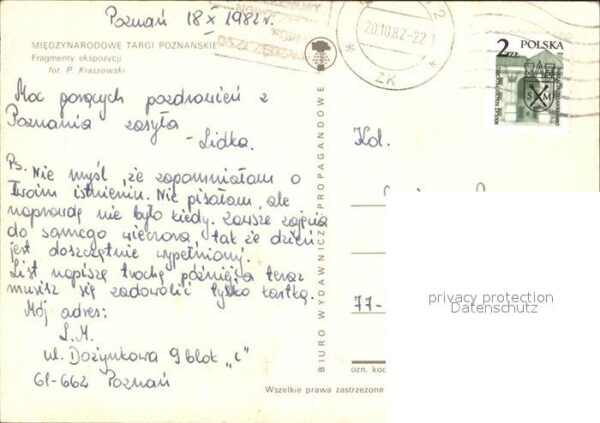 Poznań 18 X 1982 r.
MIĘDZYNARODOWE TARGI POZNAŃSKIE
Fragmenty ekspozycji
fot. P. Krassowski
20.10.82-22
ZK
2 ZŁ POLSKA
S M
Moc gorących pozdrowień z
Poznania zasyła
- Lidka.
Ps. Nie myśl, że zapomniałam o
Twoim istnieniu. Nie pisałam, ale
naprawdę nie było kiedy. Zawsze zajęcia
do samego wieczora, tak że dzień
jest doszczętnie wypełniony.
List napiszę trochę później, a teraz
musisz się zadowolić tylko kartką.
Mój adres:
L.M.
ul. Dożynkowa 9 blok "C"
61-662 Poznań
BIURO WYDAWNICZO-PROPAGANDOWE
Kol.
77-
ozn. kod
Wszelkie prawa zastrzeżone
privacy protection
Datenschutz